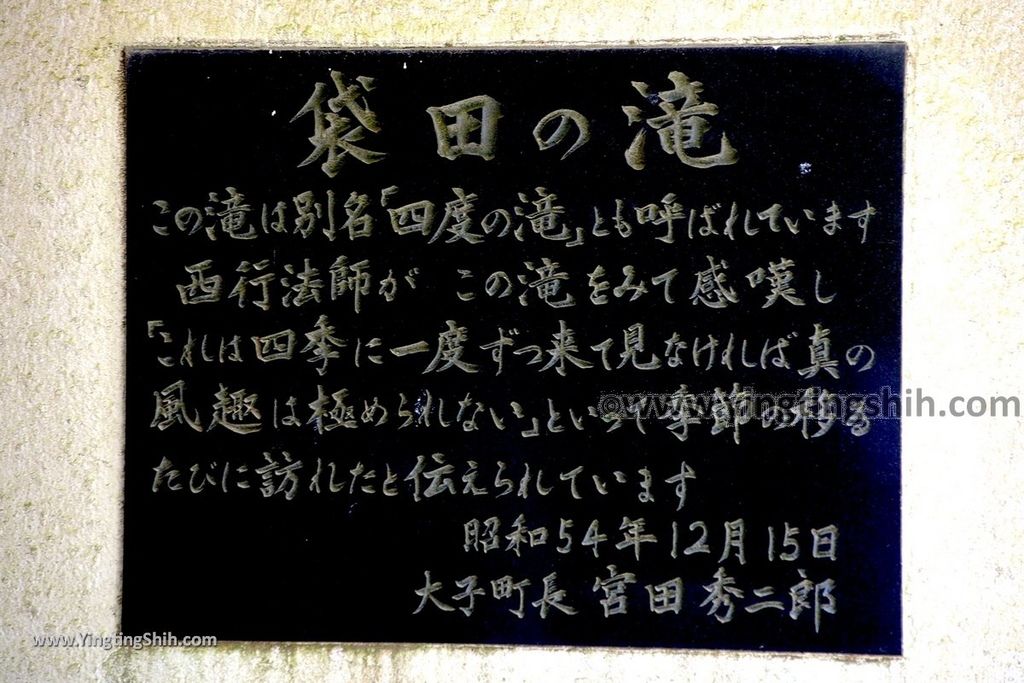 袋田の滝
この滝は別名「四度の滝」とも呼ばれています
西行法師が この滝をみて感嘆し
「これは四季に一度ずつ来て見なければ真の
風趣は極められない」といって季節の移る
たびに訪れたと伝えられています
昭和54年12月15日
大子町長 宮田秀二郎
©www.YingtingShih.com
www.YingtingShih.com